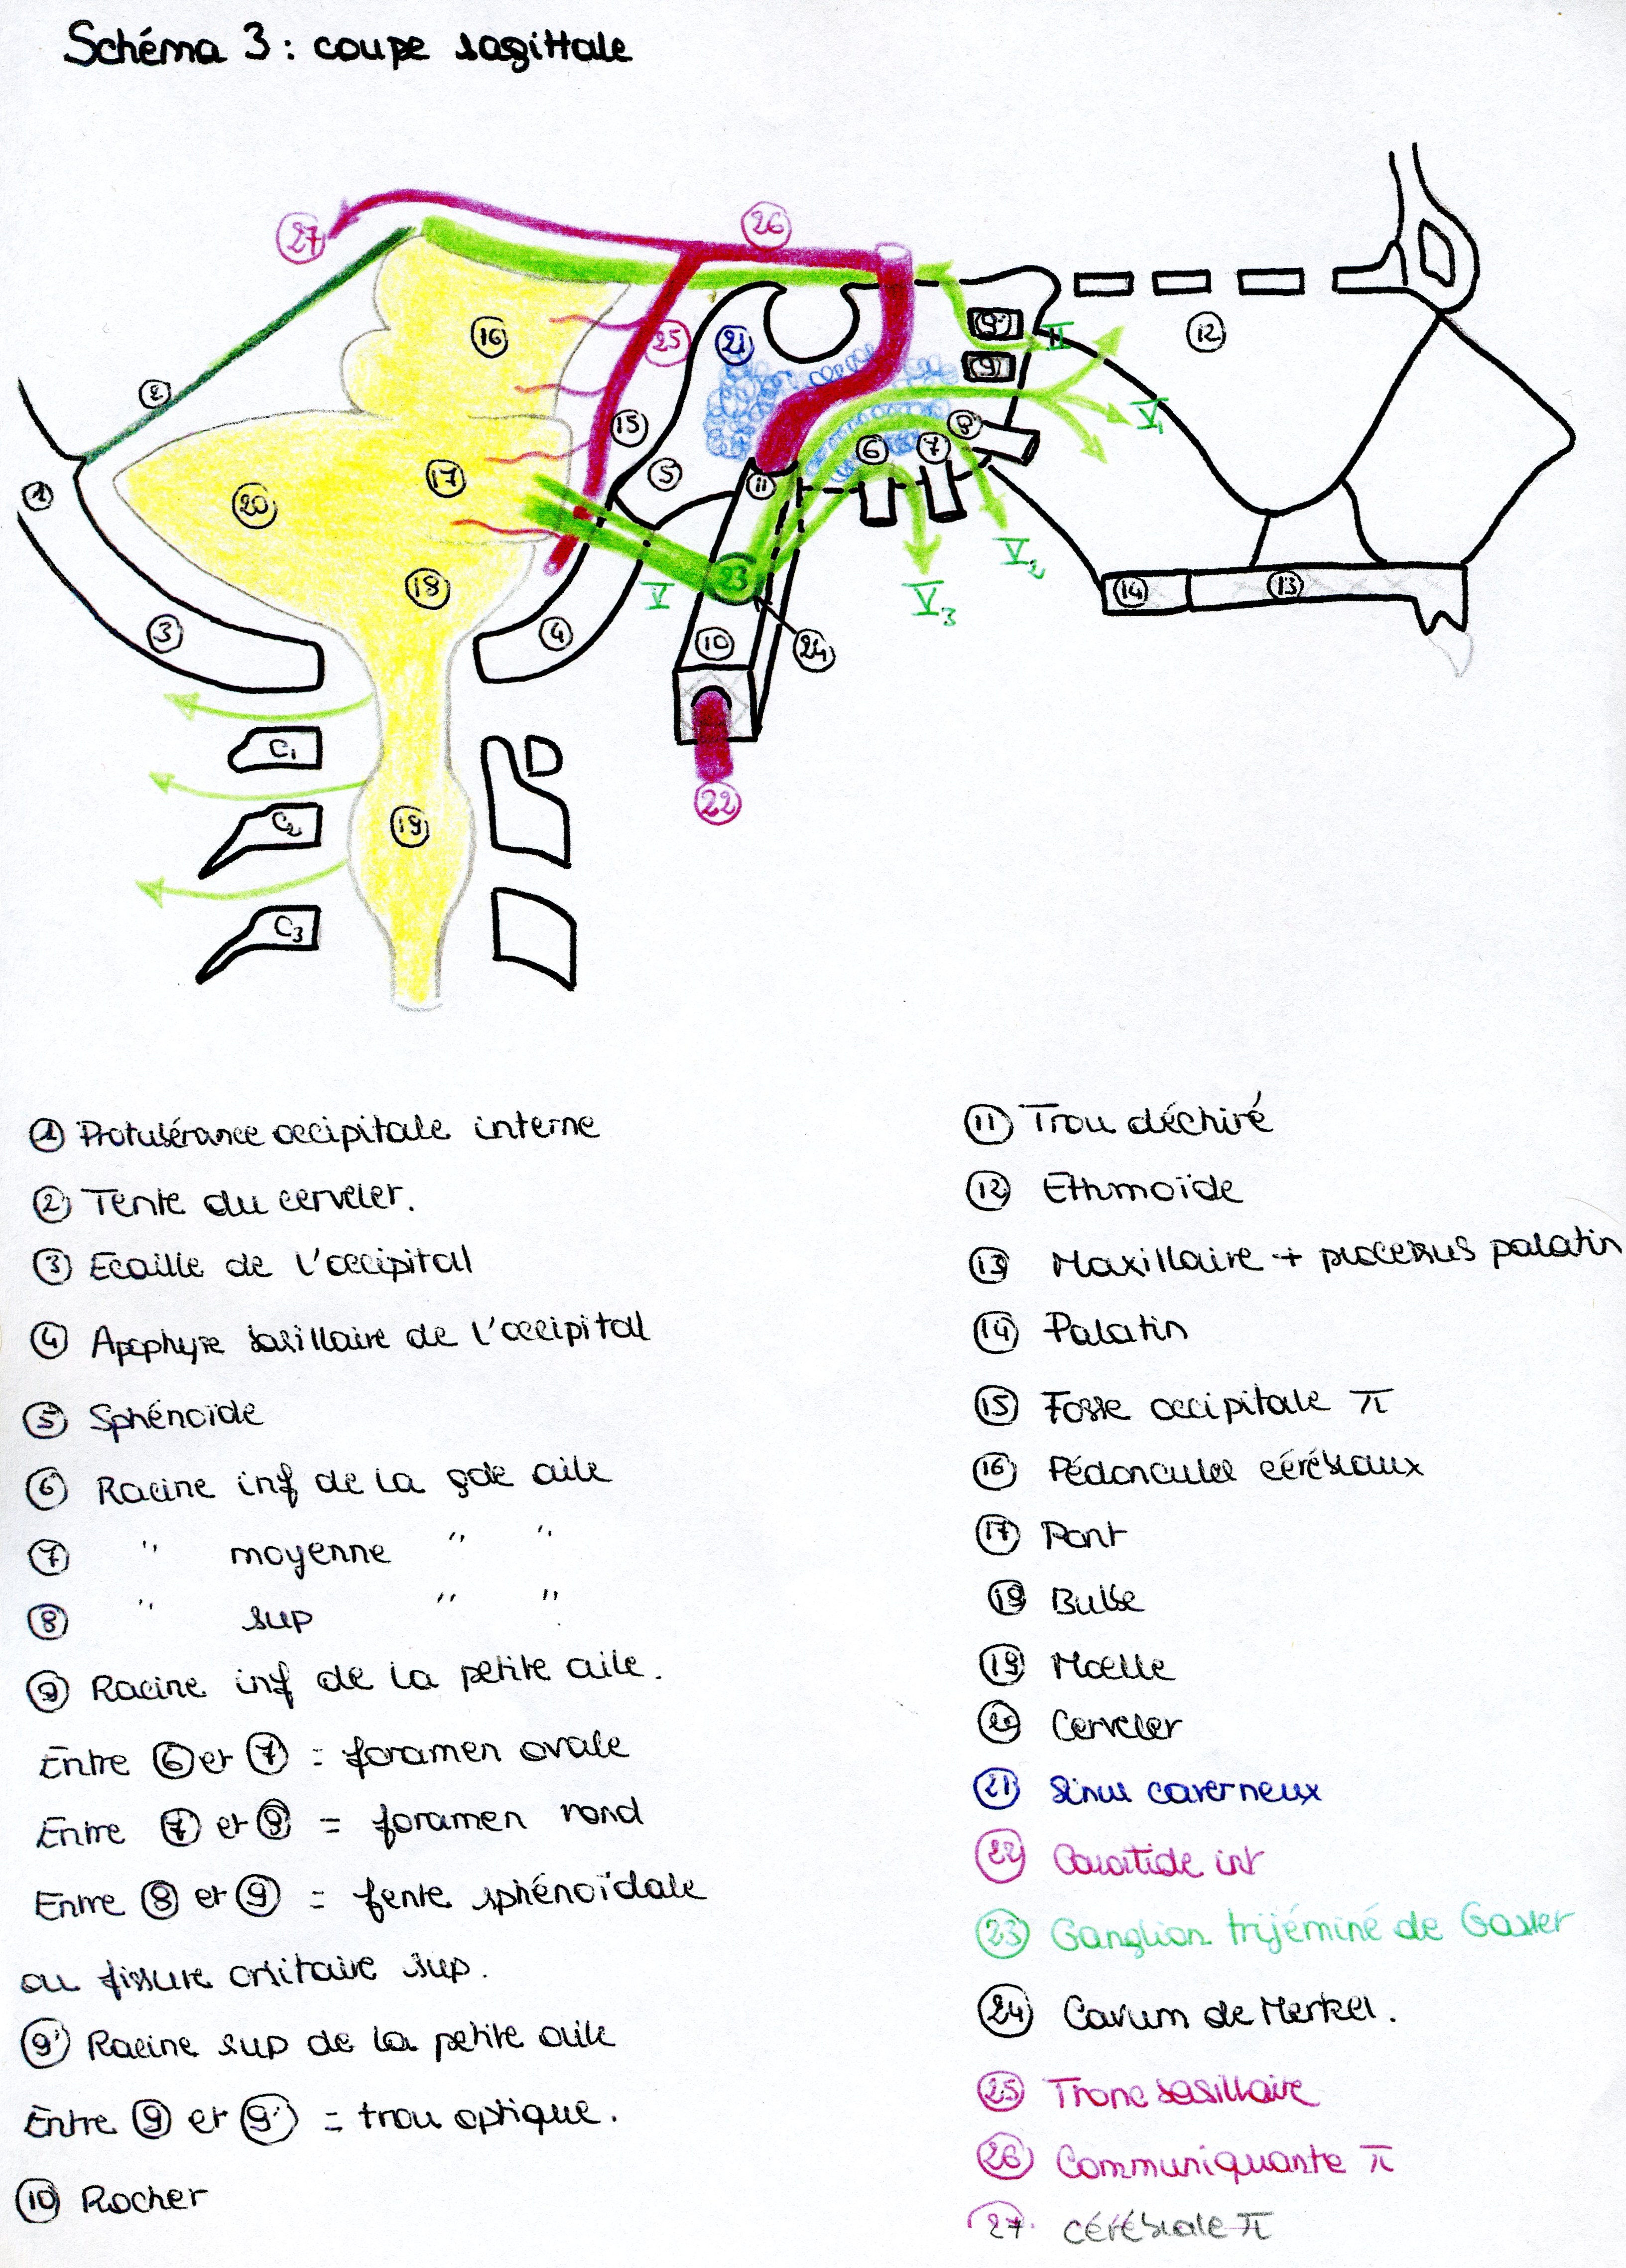 Schéma 3 : coupe sagittale
27
26
2
16
25
21
9'
II
12
9
V1
15
8
1
20
17
5
11
6
7
V2
23
V
V3
14
13
18
3
4
10
24
C1
22
C2
19
C3
① Protubérance occipitale interne
② Tente du cervelet.
③ Ecaille de l'occipital
④ Apophyse basillaire de l'occipital
⑤ Sphénoïde
⑥ Racine inf de la gde aile
⑦ " moyenne " "
⑧ " sup " "
⑨ Racine inf de la petite aile.
Entre ⑥ et ⑦ = foramen ovale
Entre ⑦ et ⑧ = foramen rond
Entre ⑧ et ⑨ = fente sphénoïdale
ou fissure orbitaire sup.
9' Racine sup de la petite aile
Entre ⑨ et 9' = trou optique.
⑩ Rocher
⑪ Trou déchiré
⑫ Ethmoïde
⑬ Maxillaire + processus palatin
⑭ Palatin
⑮ Fosse occipitale π
⑯ Pédoncules cérébraux
⑰ Pont
⑱ Bulbe
⑲ Moelle
⑳ Cervelet
21 Sinus caverneux
22 Carotide int
23 Ganglion trijéminé de Gasser
24 Cavum de Merkel.
25 Tronc basillaire
26 Communiquante π
27. cérébrale π